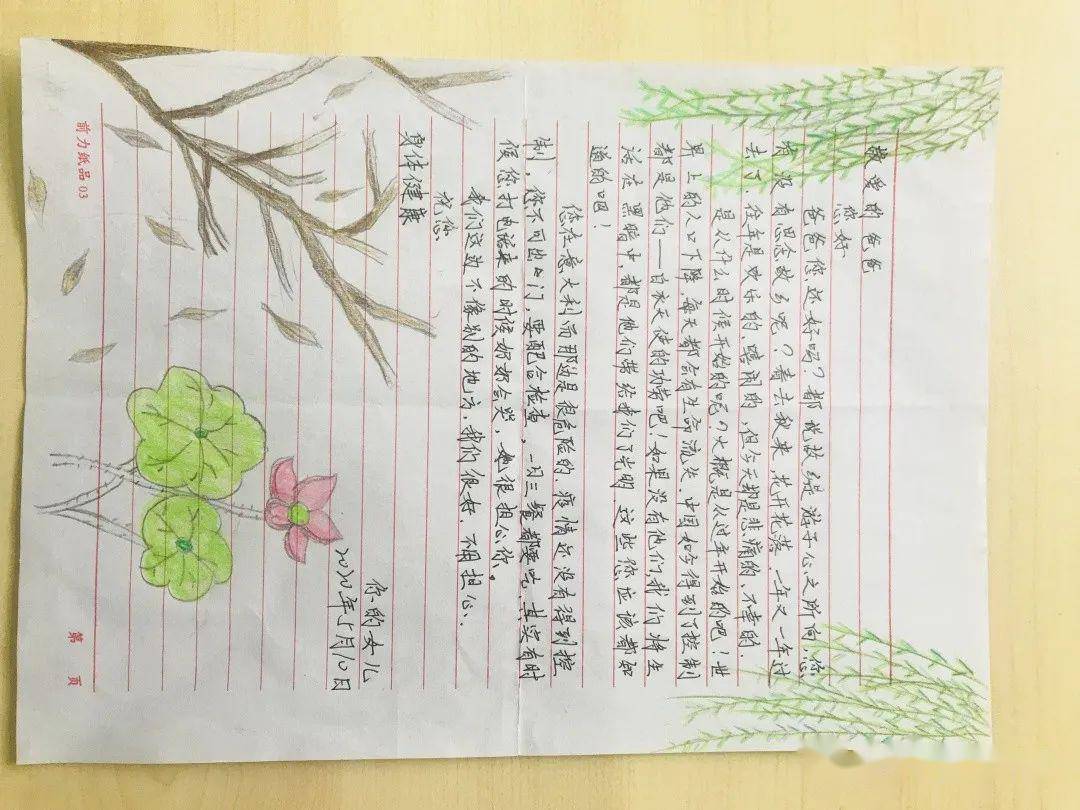 敬爱的爸爸
您好
爸爸你还好吗？都说故乡是游子心之所向，您
有没有思念故乡呢？春去秋来，花开花落，一年又一年过
去了，往年是欢乐的、嘻闹的，但今天却是悲痛的、不幸的，
是从什么时候开始的呢？大概是从过年开始的吧！世
界上的人口下降，每天都会有生命流失，中国如今得到了控制
都是他们——白衣天使的功劳吧！如果没有他们我们将生
活在黑暗中，都是他们带给我们了光明，这些你应该都知
道的吧！
您在意大利，而那边是很危险的，疫情还没有得到控
制，你不可出口门，要配合检查，一日三餐都要吃，其实有时
候您打电话来的时候奶奶会哭，她很担心你。
我们这边不像别的地方，我们很好，不用担心。
祝您
身体健康
你的女儿
2020年5月10日
前力纸品 03
第 页